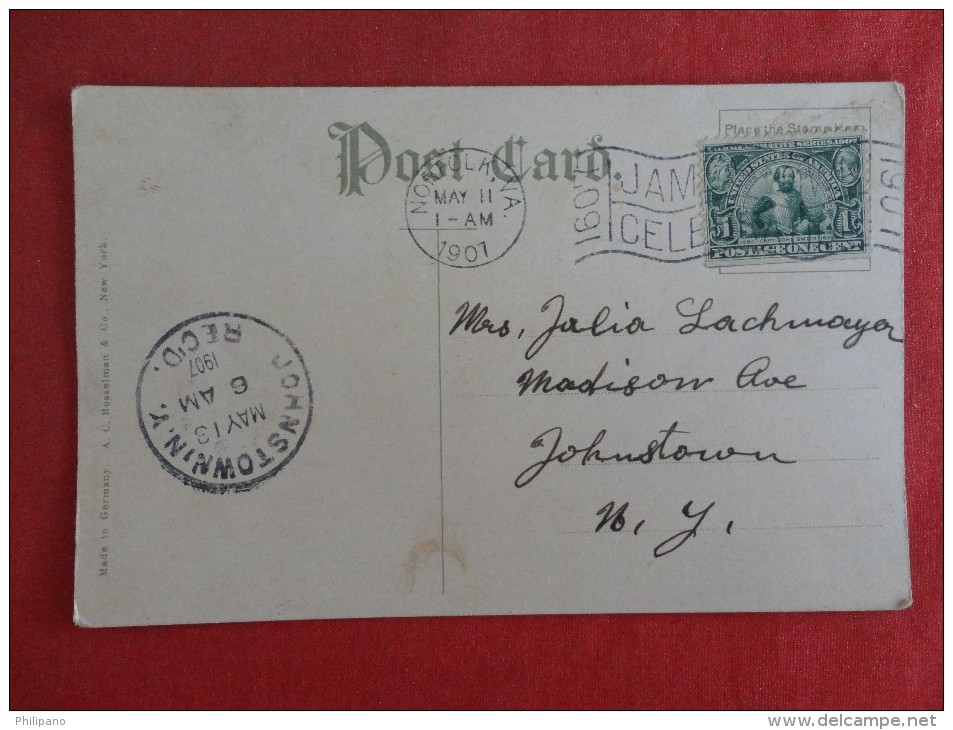 Post Card.
Place the Stamp Here
NORFOLK, VA.
MAY 11
1-AM
1907
1607
JAM
CELEB
1907
COMMEMORATIVE SERIES 1907
UNITED STATES OF AMERICA
1580 CAPT. JOHN SMITH 1631
1 1
POSTAGE ONE CENT
Mrs, Julia Lachmayer
Madison Ave
Johnstown
N. Y.
JOHNSTOWN N.Y.
MAY 13
6 AM
1907
REC'D.
Made in Germany A. C. Bosselman & Co., New York.
Philipano
www.delcampe.net